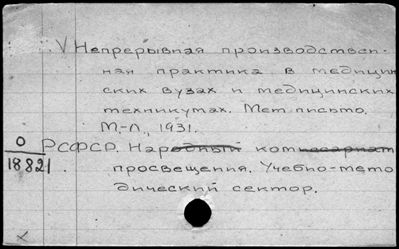 V Непрерывная производствен-
ная практика в медицин
ских вузах и медицинских
техникумах. Мет. письмо.
М.-Л., 1931.
О
18821
РСФСР. Народный комиссариат
просвещения. Учебно-мето
дический сектор.